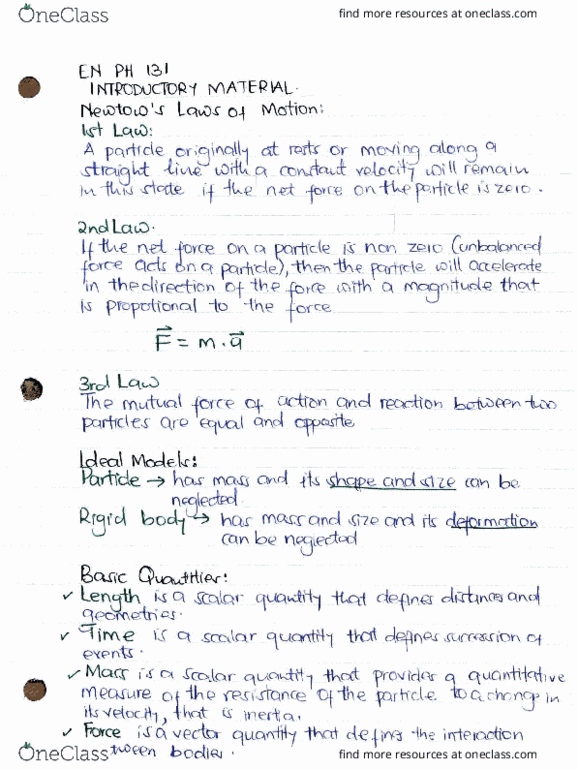 OneClass
find more resources at oneclass.com
EN PH 131
INTRODUCTORY MATERIAL.
Newtow's Laws of Motion:
1st Law:
A particle originally at rests or moving along a
straight line with a constant velocity will remain
in this state if the net force on the particle is zero.
2nd Law.
If the net force on a particle is non zero (unbalanced
force acts on a particle), then the particle will accelerate
in the direction of the force with a magnitude that
is propotional to the force
F⃗ = m · a⃗
3rd Law
The mutual force of action and reaction between two
particles are equal and opposite
Ideal Models:
Particle → has mass and its shape and size can be
neglected.
Rigid body → has mass and size and its deformation
can be neglected
Basic Quantities:
✓ Length is a scalar quantity that defines distances and
geometries.
✓ Time is a scalar quantity that defines succession of
events.
✓ Mass is a scalar quantity that provides a quantitative
measure of the resistance of the particle to a change in
its velocity, that is inertia.
✓ Force is a vector quantity that defins the interaction
tween bodies.
OneClass
find more resources at oneclass.com